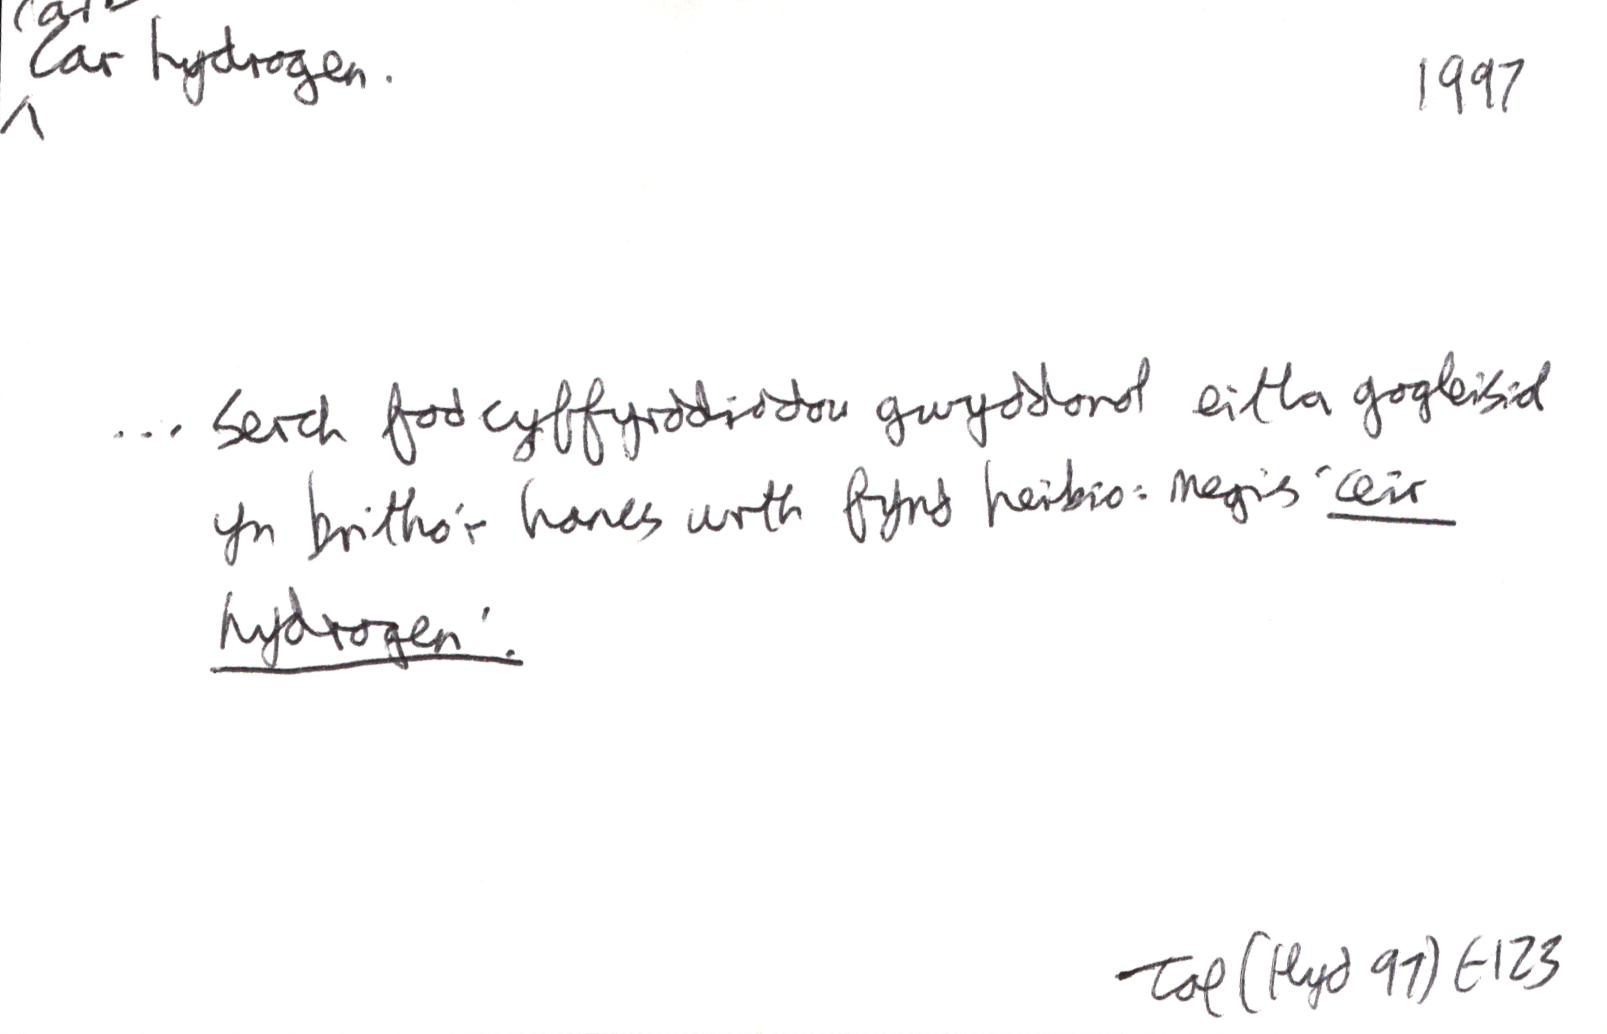 Car hydrogen.
1997
... serch fod cyffyrddiadau gwyddonol eitha gogleisiol
yn britho'r hanes wrth fynd heibio: megis 'ceir
hydrogen'.
(Hyd 97) E123